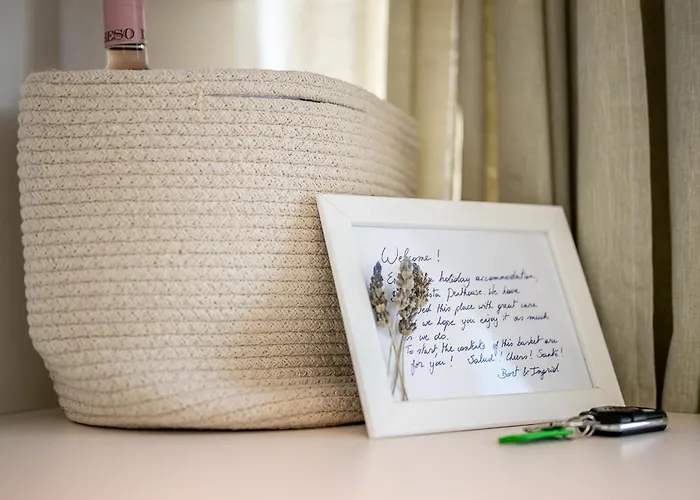 ESO
Welcome!
holiday accommodation,
Penthouse. We have
this place with great care
we hope you enjoy it as much
we do.
To start, the contents of this basket are
for you! Salud! Cheers! Santé!
Bart & Ingrid